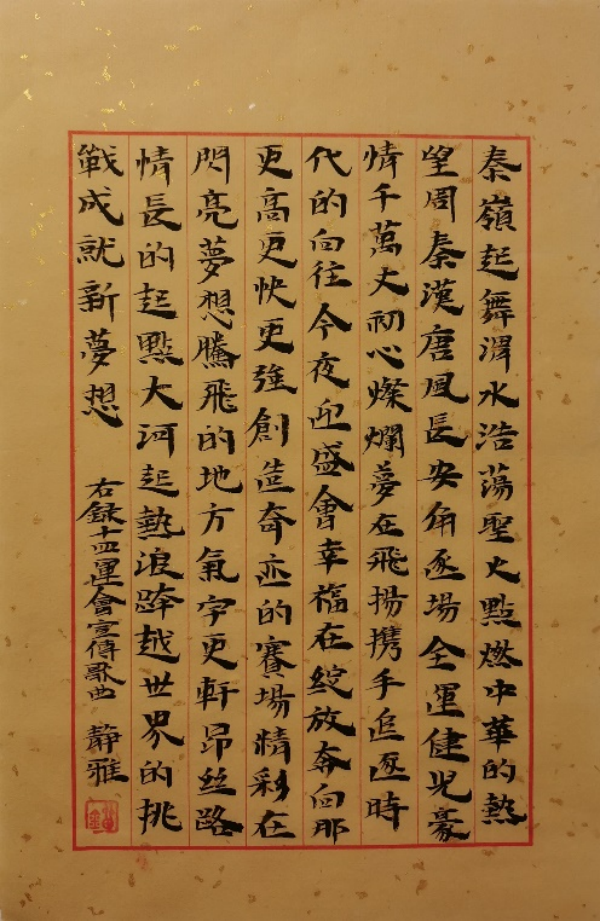 秦嶺起舞渭水浩蕩聖火點燃中華的熱
望周秦漢唐風長安角逐場全運健児豪
情千萬丈初心燦爛夢在飛揚携手追逐時
代的向往今夜迎盛會幸福在綻放奔向那
更高更快更強創造奇迹的賽場精彩在
閃亮夢想騰飛的地方氣宇更軒昂丝路
情長的起點大河起熱浪跨越世界的挑
戰成就新夢想
右録十四運會宣傳歌曲 静雅